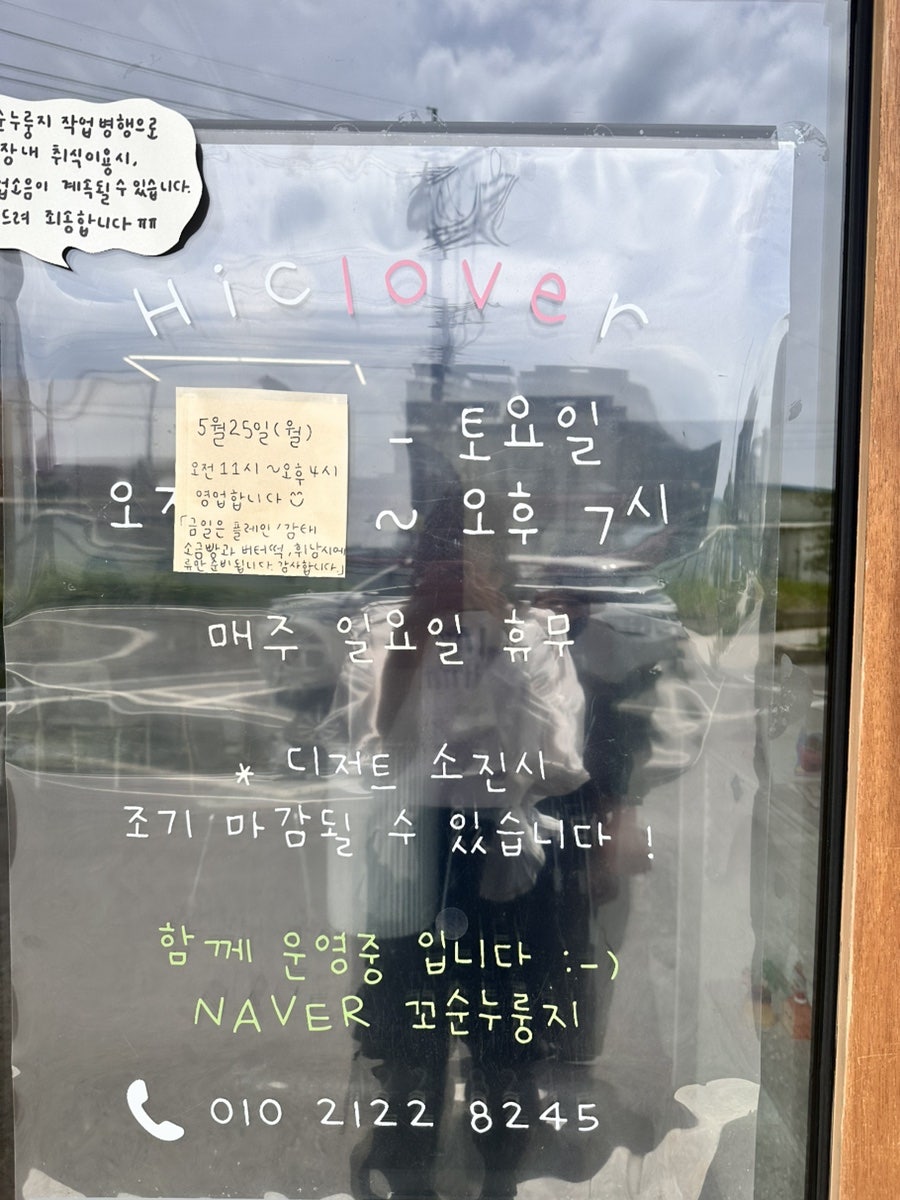 순누룽지 작업병행으로
장내 취식이용시,
업소음이 계속될 수 있습니다.
드려 죄송합니다 ㅠㅠ
Hiclover
5월25일(월)
오전 11시 ~오후 4시
영업합니다
「금일은 플레인/감태
소금빵과 버터떡, 휘낭시에
류만 준비됩니다. 감사합니다.」
- 토요일
오전 ~ 오후 7시
매주 일요일 휴무
* 디저트 소진시
조기 마감될 수 있습니다 !
함께 운영중 입니다 :-)
NAVER 꼬순누룽지
010 2122 8245